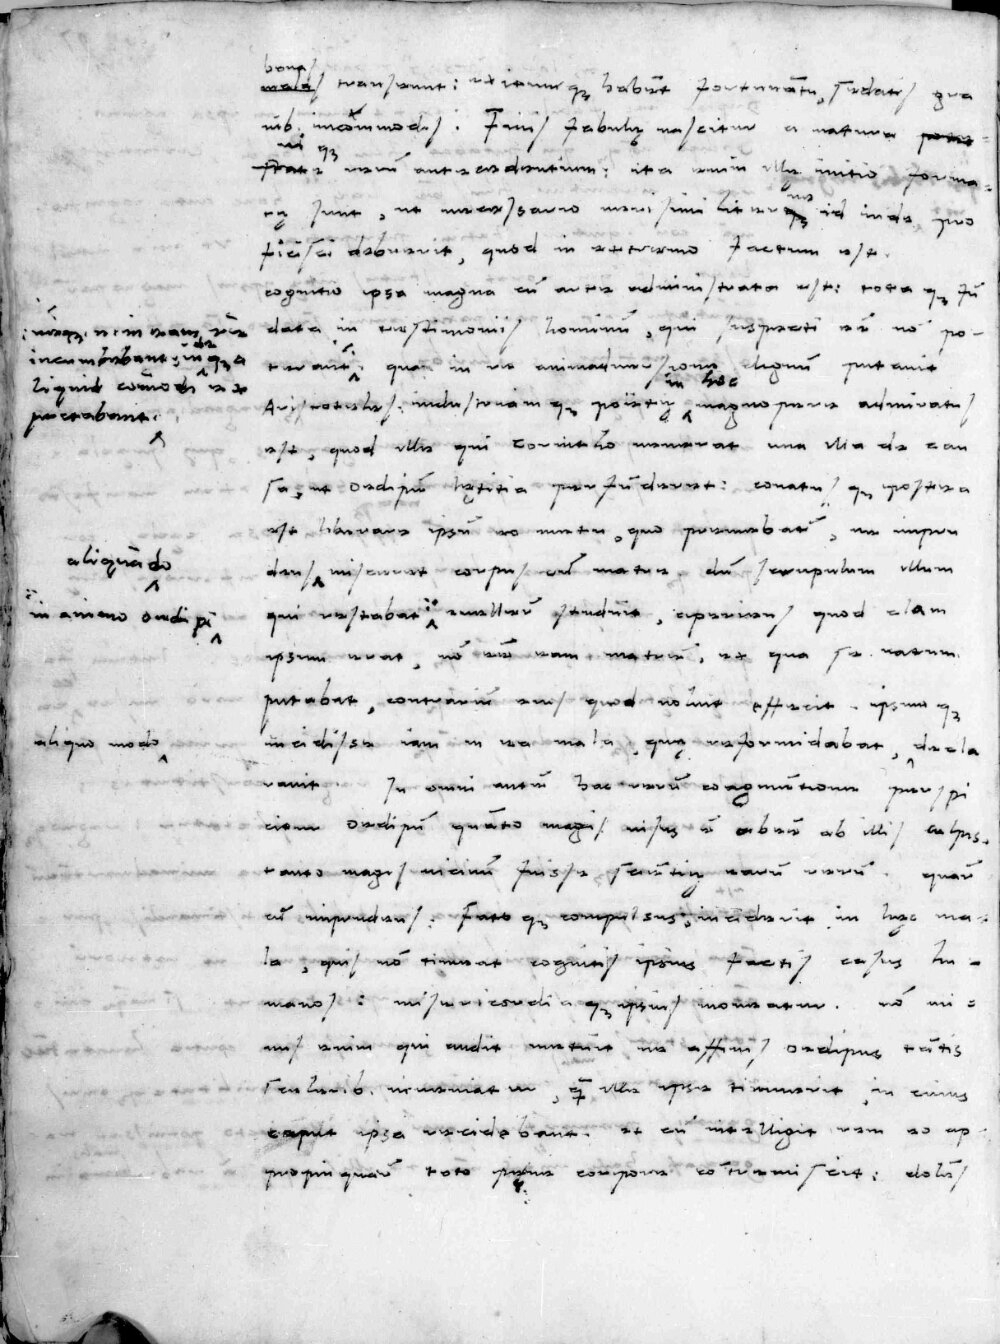 bonas
malas transeunt: exitum q; habēt fortunatū, sedatis gra
uib. incōmmodis. Finis fabulę nascitur a natura
ui q;
rerū antecedentium: ita enim illę initio forma-
tę sunt, ut necessario uerisimiliterue id inde pro
ficisci debuerit, quod in extremo factum est.
cognitio ipsa magna cū arte administrata est: tota q; fū
data in testimoniis hominū, qui suspecti eē nō po-
terāt: quā in re animaduersione dignū putauit
Aristoteles: industriam q; poëtę in hoc magnopere admiratus
est, quod ille qui Corintho uenerat una illa de cau
sa, ut Oedipū lętitia perfūderet: conatus q; postea
est liberare ipsū eo metu, quo premebatʳ, ne impru
dens misceret corpus cū matre, dū scrupulum illum
qui restabat euellere studuit, aperiens quod clam
ipsum erat, nō eē eam matrē, ex qua se natum
putabat, contrarium eius quod uoluit effecit. ipsum q;
incidisse iam in ea mala, quę reformidabat, decla
rauit. In omni autē hac rerū coagmētatione perspi
citur Oedipū quāto magis uisus ē abeē ab illis culpis,
tanto magis uicinū fuisse scēntię earū rerū. quare
cū imprudens: Fato q; compulsus, inciderit in hęc ma-
la, quis nō timeat cognitis ipsius factis casus hu-
manos: misericordia q; ipsius moueatur. nō mi-
nus enim qui audit metuit ne affinis Oedipus tātis
scelerib. inueniatur, q̄ ille ipse timuerit, in cuius
caput ipsa recidebant. et cū intelligit rem eo ap-
propinquare toto pęne corpore cōtremiscit: doles
incumbebant:
liquid cōmodi ex
pectabant.
aliquādo
in animo Oedipi
aliquo modo